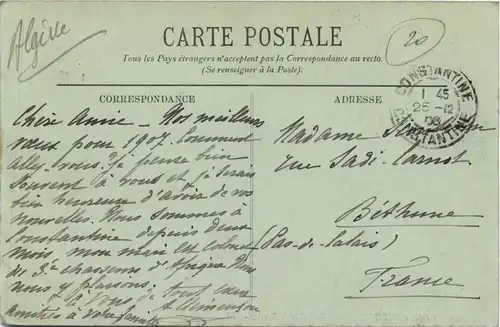 Algérie
CARTE POSTALE
20
Tous les Pays étrangers n'acceptent pas la Correspondance au recto.
(Se renseigner à la Poste).
CORRESPONDANCE
ADRESSE
CONSTANTINE
1 45
25 -12
06
CONSTANTINE
Chère Anne - Nos meilleurs
vœux pour 1907. Comment
allez-vous. Je pense bien
souvent à vous et je serais
bien heureuse d'avoir de vos
nouvelles. Nous sommes à
Constantine depuis deux
mois, mon mari est colonel
du 3e chasseurs d'Afrique. Nous
nous y plaisons.
à vous de tout cœur
amitiés à votre famille
Madame
rue Sadi-Carnot
Béthune
(Pas-de-Calais)
France